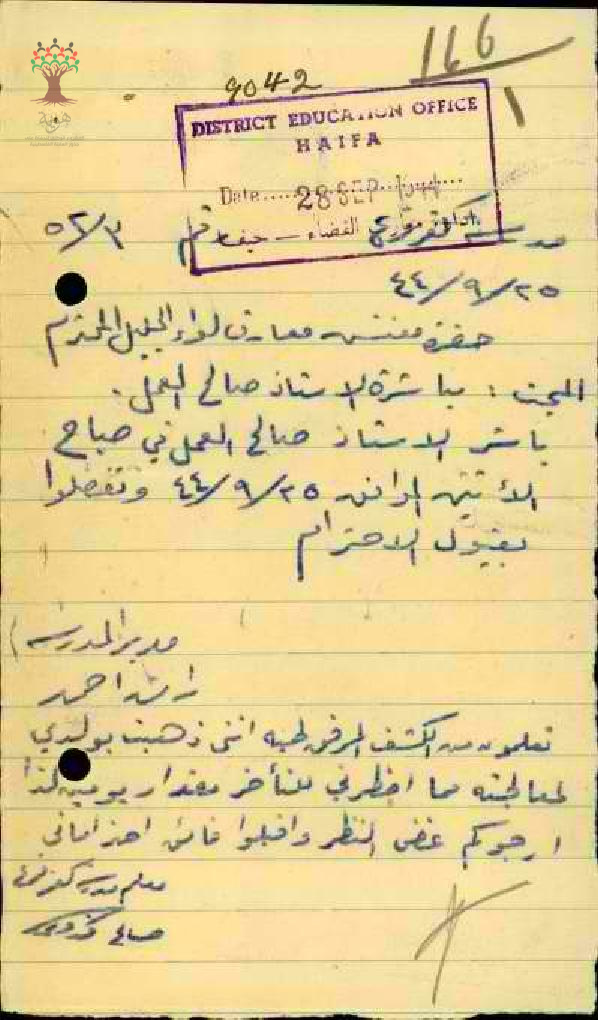 166
9042
1
DISTRICT EDUCATION OFFICE
HAIFA
Date 28 SEP 1944
مدرسة كفر قضاء حيفا رقم ٥٢/٣
٢٥/٩/٤٤
حضرة مفتش معارف لواء الجليل المحترم
المبحث : مباشرة الاستاذ صالح العمل .
باشر الاستاذ صالح العمل في صباح
الاثنين الموافق ٢٥/٩/٤٤ وتفضلوا
بقبول الاحترام
مدير المدرسة
احمد
تعلمون من الكشف المرفق طيه انني ذهبت بولدي
لمعالجته مما اضطرني للتأخر مقدار يومين لذا
ارجوكم غض النظر واقبلوا فائق احتراماتي
معلم مدرسة كفر
صالح